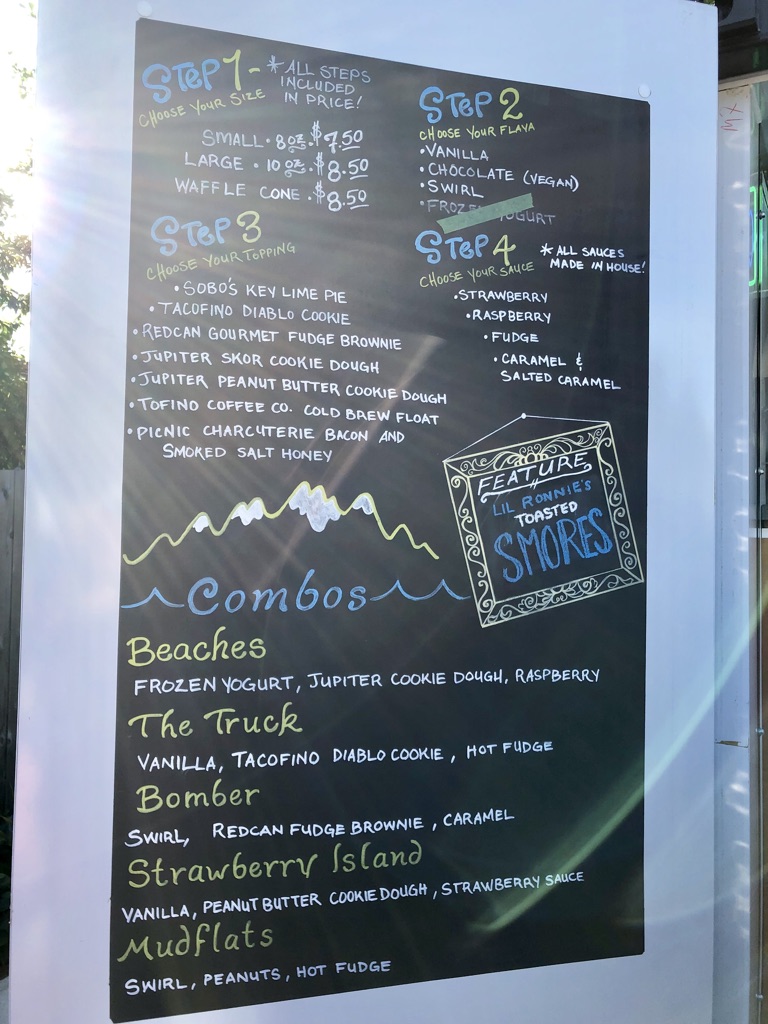 STEP 1-
CHOOSE YOUR SIZE
* ALL STEPS
INCLUDED
IN PRICE!
SMALL • 8 oz. $7.50
LARGE • 10 oz. $8.50
WAFFLE CONE • $8.50
STEP 2
CHOOSE YOUR FLAVA
• VANILLA
• CHOCOLATE (VEGAN)
• SWIRL
• FROZEN YOGURT
STEP 3
CHOOSE YOUR TOPPING
• SOBO'S KEY LIME PIE
• TACOFINO DIABLO COOKIE
• REDCAN GOURMET FUDGE BROWNIE
• JUPITER SKOR COOKIE DOUGH
• JUPITER PEANUT BUTTER COOKIE DOUGH
• TOFINO COFFEE CO. COLD BREW FLOAT
• PICNIC CHARCUTERIE BACON AND
SMOKED SALT HONEY
STEP 4
CHOOSE YOUR SAUCE
* ALL SAUCES
MADE IN HOUSE!
• STRAWBERRY
• RASPBERRY
• FUDGE
• CARAMEL &
SALTED CARAMEL
FEATURE
LIL RONNIE'S
TOASTED
SMORES
Combos
Beaches
FROZEN YOGURT, JUPITER COOKIE DOUGH, RASPBERRY
The Truck
VANILLA, TACOFINO DIABLO COOKIE, HOT FUDGE
Bomber
SWIRL, REDCAN FUDGE BROWNIE, CARAMEL
Strawberry Island
VANILLA, PEANUT BUTTER COOKIE DOUGH, STRAWBERRY SAUCE
Mudflats
SWIRL, PEANUTS, HOT FUDGE